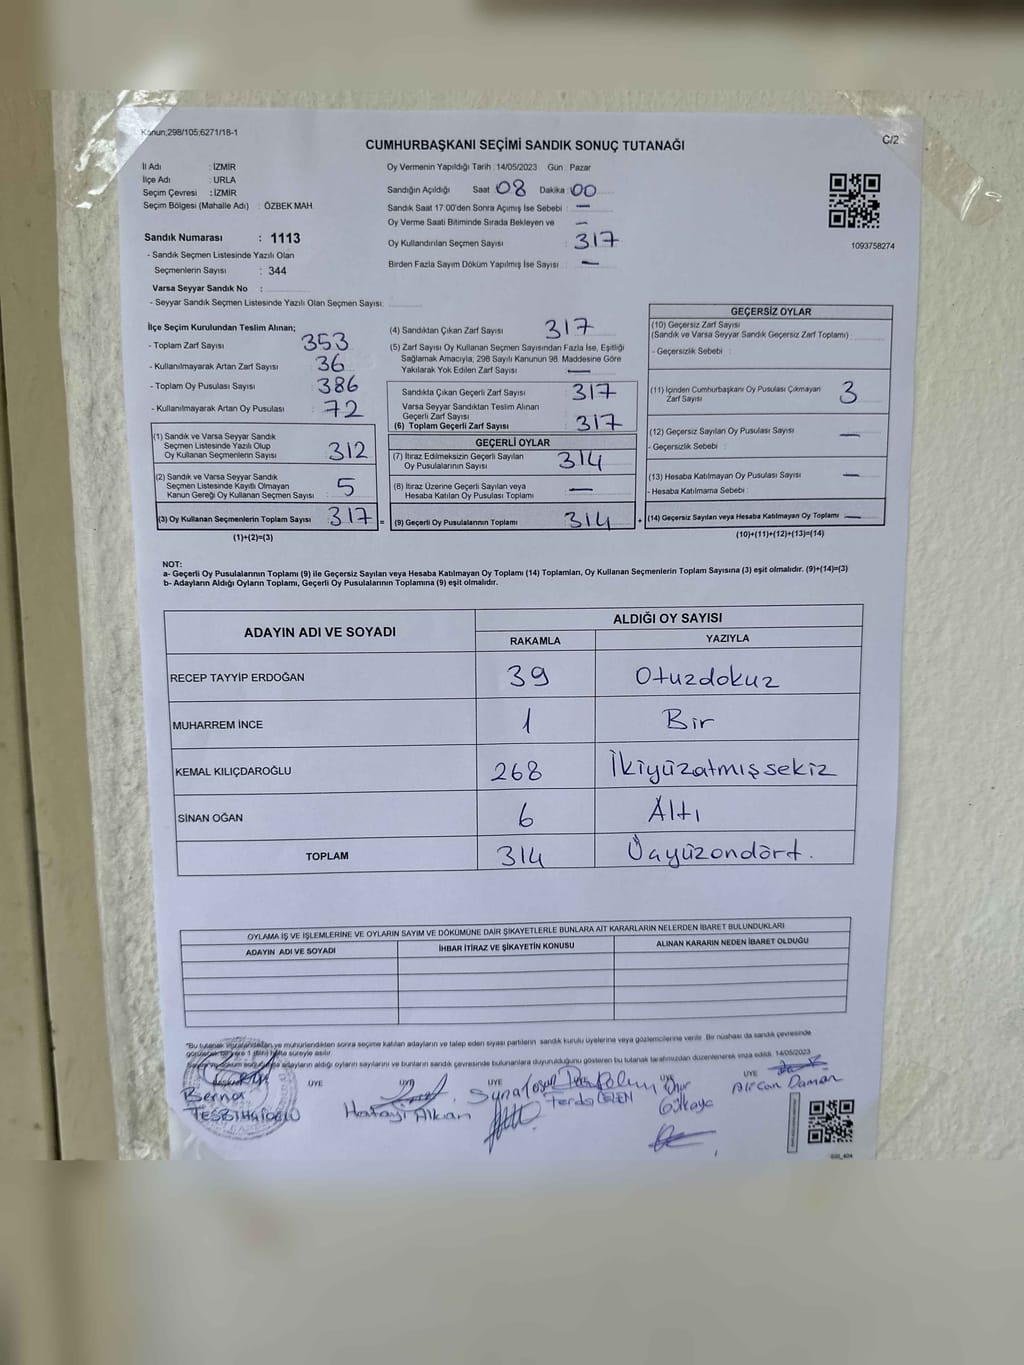 Kanun;298/105;6271/18-1
C/2
CUMHURBAŞKANI SEÇİMİ SANDIK SONUÇ TUTANAĞI
İl Adı : İZMİR
İlçe Adı : URLA
Seçim Çevresi : İZMİR
Seçim Bölgesi (Mahalle Adı) : ÖZBEK MAH.
Sandık Numarası : 1113
- Sandık Seçmen Listesinde Yazılı Olan
Seçmenlerin Sayısı : 344
Varsa Seyyar Sandık No :
- Seyyar Sandık Seçmen Listesinde Yazılı Olan Seçmen Sayısı:
Oy Vermenin Yapıldığı Tarih : 14/05/2023 Gün : Pazar
Sandığın Açıldığı Saat 08 Dakika : 00
Sandık Saat 17:00'den Sonra Açımış İse Sebebi : —
Oy Verme Saati Bitiminde Sırada Bekleyen ve —
Oy Kullandırılan Seçmen Sayısı : 317
Birden Fazla Sayım Döküm Yapılmış İse Sayısı : —
1093758274
İlçe Seçim Kurulundan Teslim Alınan;
- Toplam Zarf Sayısı : 353
- Kullanılmayarak Artan Zarf Sayısı : 36
- Toplam Oy Pusulası Sayısı : 386
- Kullanılmayarak Artan Oy Pusulası : 72
(1) Sandık ve Varsa Seyyar Sandık
Seçmen Listesinde Yazılı Olup
Oy Kullanan Seçmenlerin Sayısı : 312
(2) Sandık ve Varsa Seyyar Sandık
Seçmen Listesinde Kayıtlı Olmayan
Kanun Gereği Oy Kullanan Seçmen Sayısı : 5
(3) Oy Kullanan Seçmenlerin Toplam Sayısı : 317 =
(1)+(2)=(3)
(4) Sandıktan Çıkan Zarf Sayısı : 317
(5) Zarf Sayısı Oy Kullanan Seçmen Sayısından Fazla İse, Eşitliği
Sağlamak Amacıyla; 298 Sayılı Kanunun 98. Maddesine Göre
Yakılarak Yok Edilen Zarf Sayısı : —
Sandıkta Çıkan Geçerli Zarf Sayısı : 317
Varsa Seyyar Sandıktan Teslim Alınan
Geçerli Zarf Sayısı
(6) Toplam Geçerli Zarf Sayısı : 317
GEÇERLİ OYLAR
(7) İtiraz Edilmeksizin Geçerli Sayılan
Oy Pusulalarının Sayısı : 314
(8) İtiraz Üzerine Geçerli Sayılan veya
Hesaba Katılan Oy Pusulası Toplamı : —
(9) Geçerli Oy Pusulalarının Toplamı : 314 +
GEÇERSİZ OYLAR
(10) Geçersiz Zarf Sayısı
(Sandık ve Varsa Seyyar Sandık Geçersiz Zarf Toplamı)
- Geçersizlik Sebebi :
(11) İçinden Cumhurbaşkanı Oy Pusulası Çıkmayan
Zarf Sayısı : 3
(12) Geçersiz Sayılan Oy Pusulası Sayısı : —
- Geçersizlik Sebebi :
(13) Hesaba Katılmayan Oy Pusulası Sayısı : —
- Hesaba Katılmama Sebebi :
(14) Geçersiz Sayılan veya Hesaba Katılmayan Oy Toplamı : —
(10)+(11)+(12)+(13)=(14)
NOT:
a- Geçerli Oy Pusulalarının Toplamı (9) ile Geçersiz Sayılan veya Hesaba Katılmayan Oy Toplamı (14) Toplamları, Oy Kullanan Seçmenlerin Toplam Sayısına (3) eşit olmalıdır. (9)+(14)=(3)
b- Adayların Aldığı Oyların Toplamı, Geçerli Oy Pusulalarının Toplamına (9) eşit olmalıdır.
ADAYIN ADI VE SOYADI
ALDIĞI OY SAYISI
RAKAMLA YAZIYLA
RECEP TAYYİP ERDOĞAN 39 Otuzdokuz
MUHARREM İNCE 1 Bir
KEMAL KILIÇDAROĞLU 268 İkiyüzatmışsekiz
SİNAN OĞAN 6 Altı
TOPLAM 314 Üçyüzondört.
OYLAMA İŞ VE İŞLEMLERİNE VE OYLARIN SAYIM VE DÖKÜMÜNE DAİR ŞİKAYETLERLE BUNLARA AİT KARARLARIN NELERDEN İBARET BULUNDUKLARI
ADAYIN ADI VE SOYADI İHBAR İTİRAZ VE ŞİKAYETİN KONUSU ALINAN KARARIN NEDEN İBARET OLDUĞU
*Bu tutanak imzalandıktan ve mühürlendikten sonra seçime katılan adayların ve talep eden siyasi partilerin sandık kurulu üyelerine veya gözlemcilerine verilir. Bir nüshası da sandık çevresinde
görülecek bir yere 1 (Bir) hafta süreyle asılır.
adayların aldığı oyların sayılarını ve bunların sandık çevresinde bulunanlara duyurulduğunu gösteren bu tutanak tarafımızdan düzenlenerek imza edildi. 14/05/2023
BAŞKAN ÜYE ÜYE ÜYE ÜYE ÜYE
Berna
TESBİHCİOĞLU
Hatayi Alkan
Ferda
Gülkaya
Alican Daman